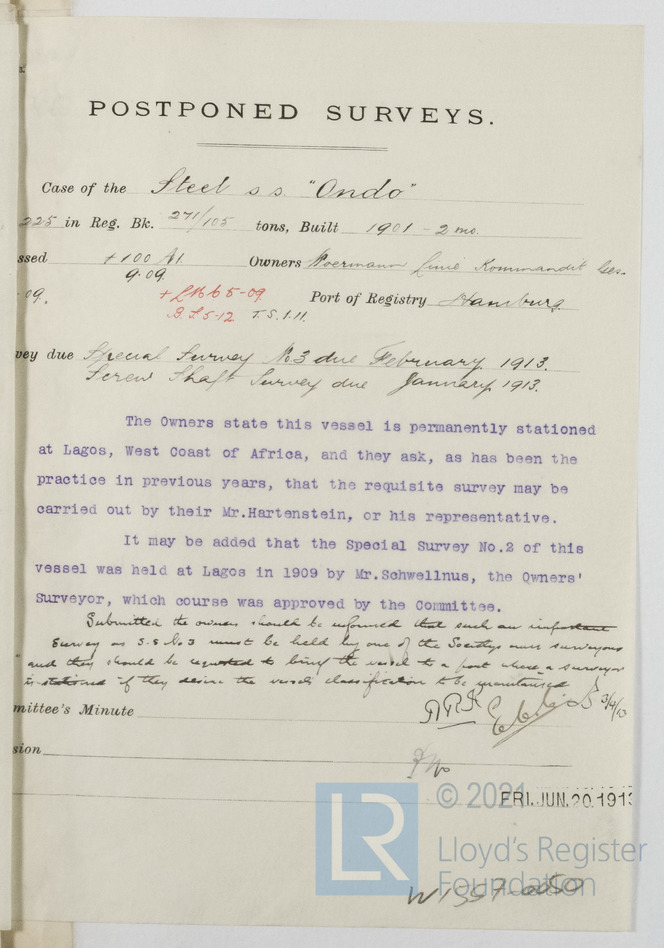 POSTPONED SURVEYS.
Case of the Steel s.s. "Ondo"
225 in Reg. Bk. 271/105 tons, Built 1901 - 2 mo.
ssed +100 A1 Owners Woermann Linie Kommandit Ges.
9.09.
.09. +LMC 5-09 Port of Registry Hamburg.
B.S 5-12 T.S.1.11.
vey due Special Survey No.3 due February 1913.
Screw Shaft Survey due January 1913.
The Owners state this vessel is permanently stationed
at Lagos, West Coast of Africa, and they ask, as has been the
practice in previous years, that the requisite survey may be
carried out by their Mr.Hartenstein, or his representative.
It may be added that the Special Survey No.2 of this
vessel was held at Lagos in 1909 by Mr.Schwellnus, the Owners'
Surveyor, which course was approved by the Committee.
Submitted the owners should be informed that such an important
Survey as S.S No 3 must be held by one of the Societys own surveyors
and they should be requested to bring the vessel to a port where a surveyor
is stationed if they desire the vessels classification to be maintained
mittee's Minute 3/4/13
sion
© 2021
FRI. JUN. 20. 1913
LR
Lloyd's Register
Foundation
W1557-0050